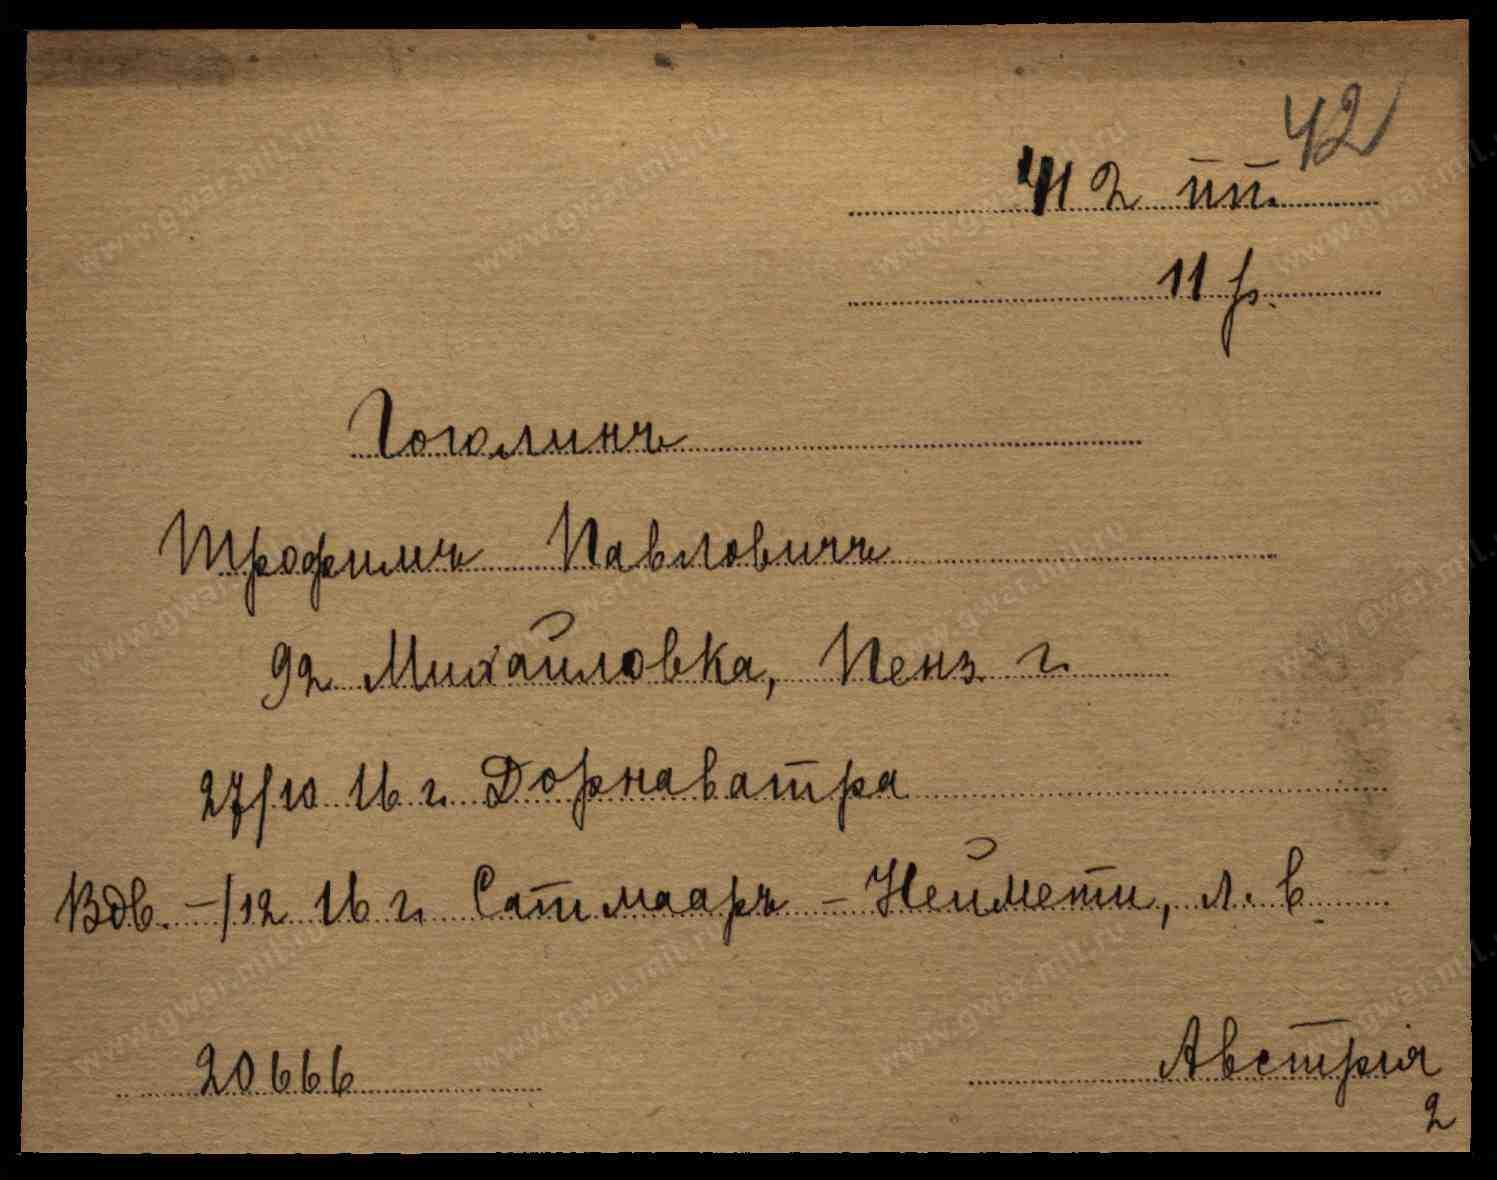 42
412 пп.
11 р.
Гоголинъ
Трофимъ Павловичъ
92 Михайловка, Пенз. г.
27/10 16 г. Дорнаватра
Вдв. –/12 16 г. Сатмааръ – Неймети, л. в.
20666
Австрія
2
www.gwar.mil.ru